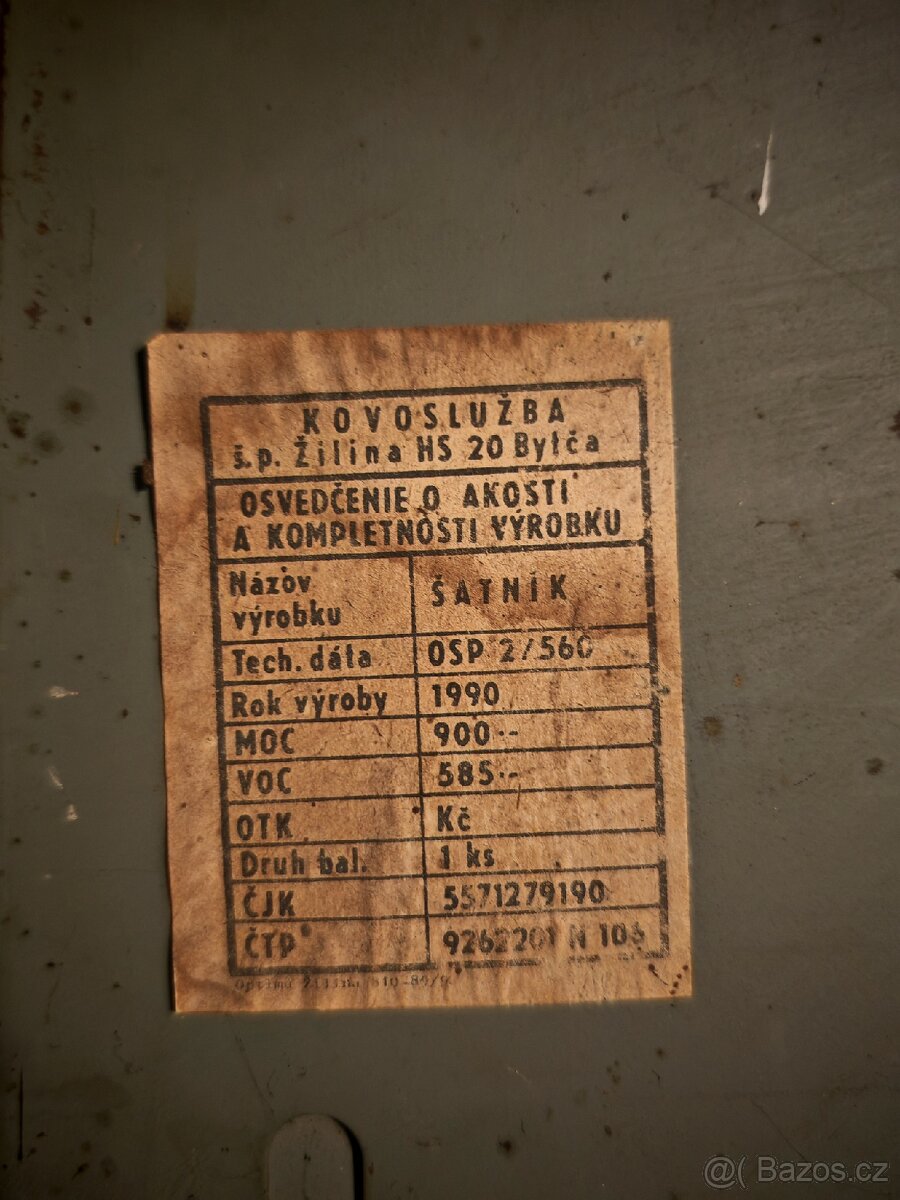 KOVOSLUŽBA
š.p. Žilina HS 20 Bytča
OSVEDČENIE O AKOSTI
A KOMPLETNOSTI VÝROBKU
Názov výrobku ŠATNÍK
Tech. dáta OSP 2/560
Rok výroby 1990
MOC 900.-
VOC 585.-
OTK Kč
Druh bal. 1 ks
ČJK 5571279190
ČTP 9262201 N 106
Optima Žilina
@( Bazos.cz